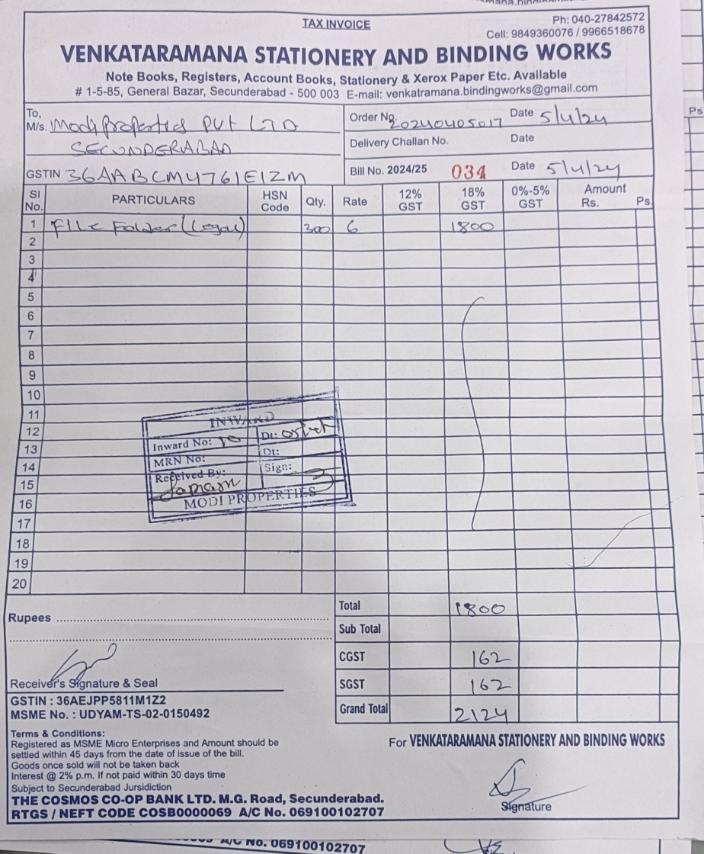 TAX INVOICE
Ph: 040-27842572
Cell: 9849360076 / 9966518678
VENKATARAMANA STATIONERY AND BINDING WORKS
Note Books, Registers, Account Books, Stationery & Xerox Paper Etc. Available
# 1-5-85, General Bazar, Secunderabad - 500 003 E-mail: venkatramana.bindingworks@gmail.com
To,
M/s. Modi Properties PVT LTD
SECUNDERABAD
GSTIN 36AABCM4761E1ZM
Order No. 20240405017 Date 5/4/24
Delivery Challan No. Date
Bill No. 2024/25 034 Date 5/4/24
Sl No. PARTICULARS HSN Code Qty. Rate 12% GST 18% GST 0%-5% GST Amount Rs. Ps.
1 File Folder (Legal) 300 6 1800
2
3
4
5
6
7
8
9
10
11
12
13
14
15
16
17
18
19
20
INWARD
Inward No: 10 Dt:
MRN No: Dt:
Received By: Sign:
MODI PROPERTIES
Total 1800
Rupees
Sub Total
CGST 162
SGST 162
Grand Total 2124
Receiver's Signature & Seal
GSTIN : 36AEJPP5811M1Z2
MSME No. : UDYAM-TS-02-0150492
Terms & Conditions:
Registered as MSME Micro Enterprises and Amount should be
settled within 45 days from the date of issue of the bill.
Goods once sold will not be taken back
Interest @ 2% p.m. If not paid within 30 days time
Subject to Secunderabad Jursidiction
THE COSMOS CO-OP BANK LTD. M.G. Road, Secunderabad.
RTGS / NEFT CODE COSB0000069 A/C No. 069100102707
For VENKATARAMANA STATIONERY AND BINDING WORKS
Signature
A/C No. 069100102707
Ps